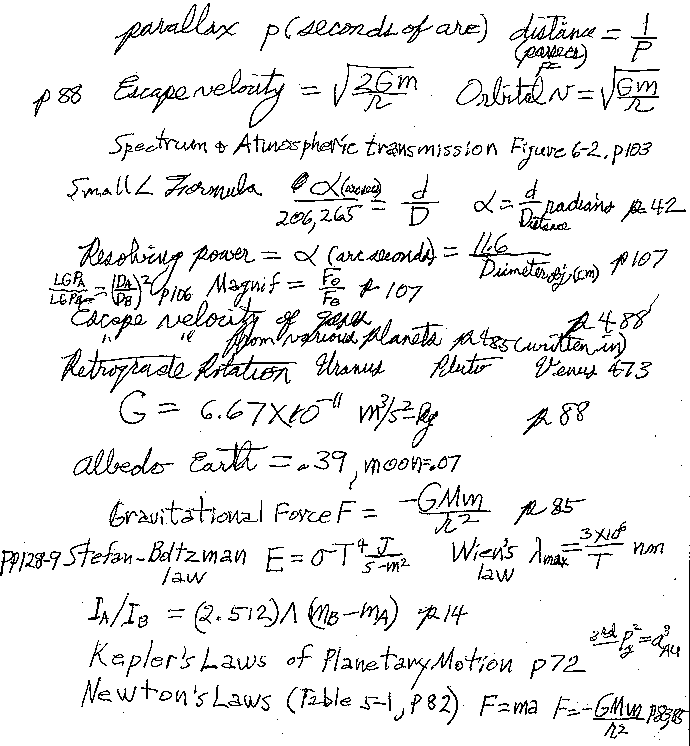 parallax p (seconds of arc) distance (parsecs) pc = 1/p
p 88 Escape velocity = √(2Gm/r) Orbital v = √(Gm/r)
Spectrum & Atmospheric transmission Figure 6-2, p103
Small ∠ Formula α(arcsec)/206,265 = d/D α = d/Distance radians p 42
Resolving power = α (arc seconds) = 11.6/Diameter obj. (cm) p 107
LGP_A/LGP_B = (D_A/D_B)² p106 Magnif = F_o/F_e p 107
Escape velocity of gases p 488
" " from various planets p 485 (written in)
Retrograde Rotation Uranus Pluto Venus 473
G = 6.67X10⁻¹¹ m³/s²-kg p 88
Albedo Earth = .39, moon=.07
Gravitational Force F = -GMm/r² p 85
pp128-9 Stefan-Boltzman law E = σT⁴ J/s-m² Wien's law λmax = 3x10⁶/T nm
I_A/I_B = (2.512)Λ (m_B-m_A) p 14
3rd P²y = a³AU
Kepler's Laws of Planetary Motion p72
Newton's Laws (Table 5-1, p82) F=ma F=-GMm/r²